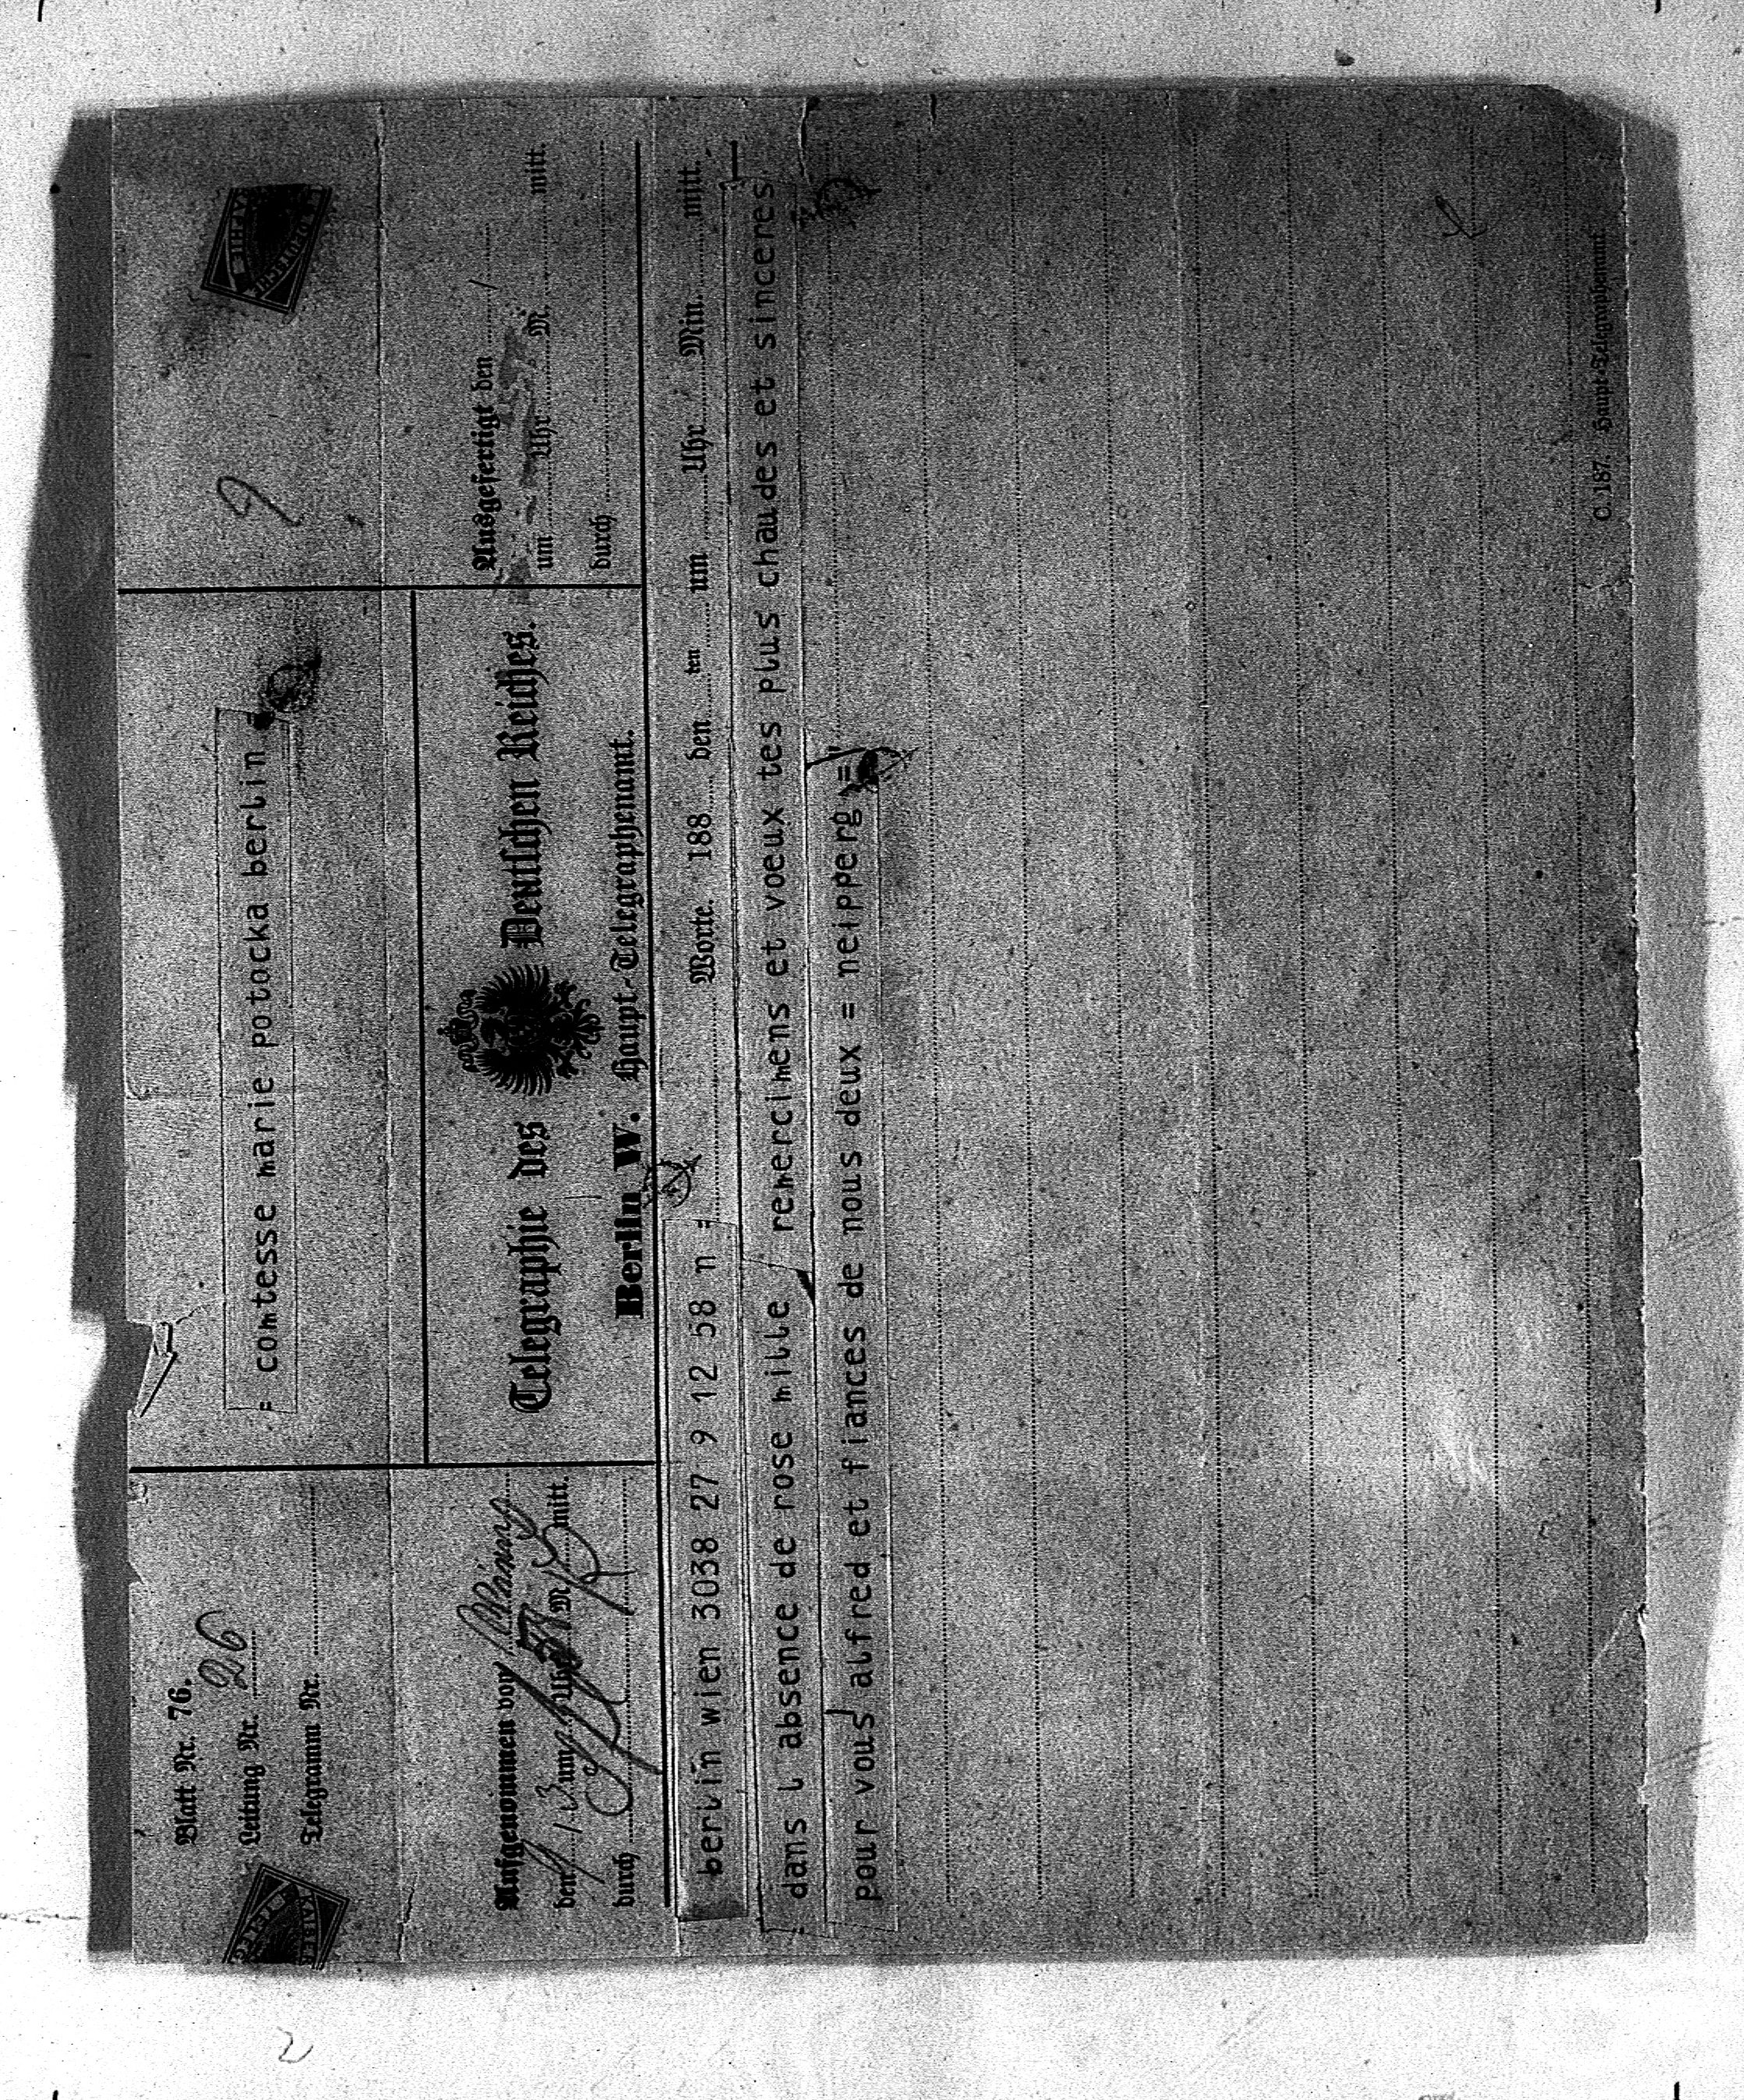 Blatt Nr. 76.
Leitung Nr. 26
Telegramm Nr.
= comtesse marie potocka berlin =
9
Telegraphie des Deutschen Reiches.
Berlin W. Haupt-Telegraphenamt.
Aufgenommen von
den 13 um Uhr M. mitt.
durch
Ausgefertigt den
um Uhr M. mitt.
durch
berlin wien 3038 27 9 12 58 n =
Worte. 188 den ten um Uhr Min. mitt.
dans l absence de rose mille remercihens et voeux tes plus chaudes et sinceres
pour vous alfred et fiances de nous deux = neipperg =
C. 187. Haupt-Telegraphenamt.
2